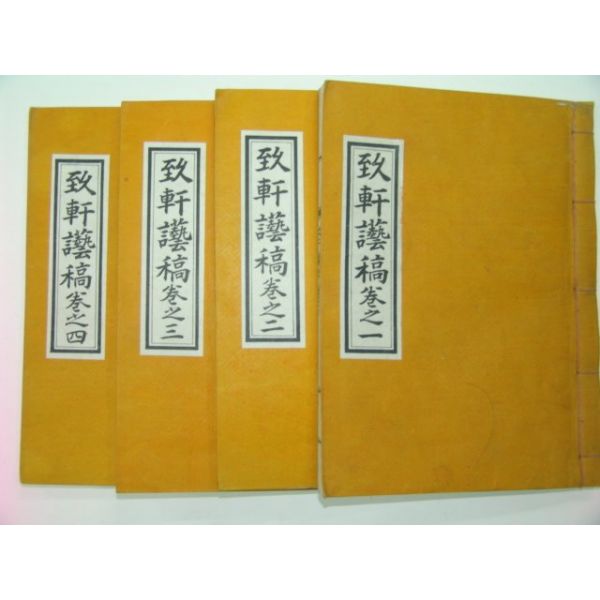 致軒讛稿卷之一
致軒讛稿卷之二
致軒讛稿卷之三
致軒讛稿卷之四